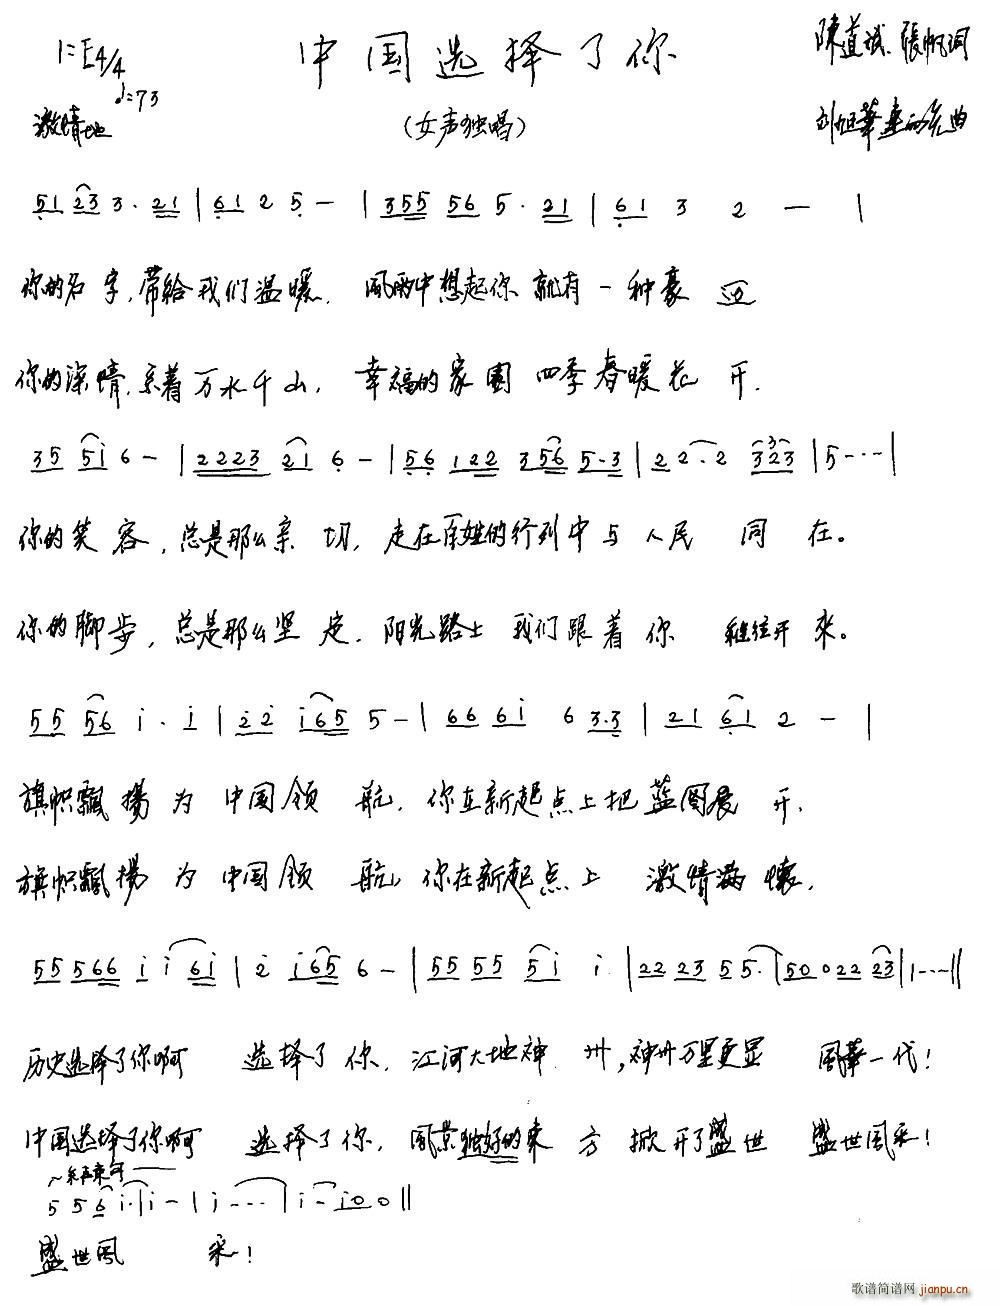 1=E4/4 中国选择了你 陳道斌、張帆词
♩=73
激情地 (女声独唱) 刘旭華 曲
51 23 3· 21 | 61 2 5 - | 355 56 5· 21 | 61 3 2 - |
你的名字,带给我们温暖. 風雨中想起你就有一种豪迈
你的深情,系着万水千山, 幸福的家園四季春暖花开.
35 5i 6 - | 2223 21 6 - | 56 122 356 5·3 | 22·2 323 | 5 - - - |
你的笑容,总是那么亲切,走在百姓的行列中与人民同在。
你的脚步,总是那么坚定.阳光路上我们跟着你继往开來。
55 56 i· i | 2 2 i65 5 - | 66 6i 6 3·3 | 21 61 2 - |
旗帜飄揚为中国领航.你在新起点上把蓝图展开.
旗帜飄揚为中国领航,你在新起点上激情满懷.
55 566 i i 6i | 2 i65 6 - | 55 55 5i i· | 22 23 55· | 50 022 23 | 1 - - - ||
历史选择了你啊 选择了你.江河大地神州,神州万里更显風華一代!
中国选择了你啊 选择了你.風景独好的東方掀开了盛世 盛世風采!
~结束句
5 5 6 i· | i - | i - - - | i - i00 ||
盛世風采!
歌谱简谱网 jianpu.cn